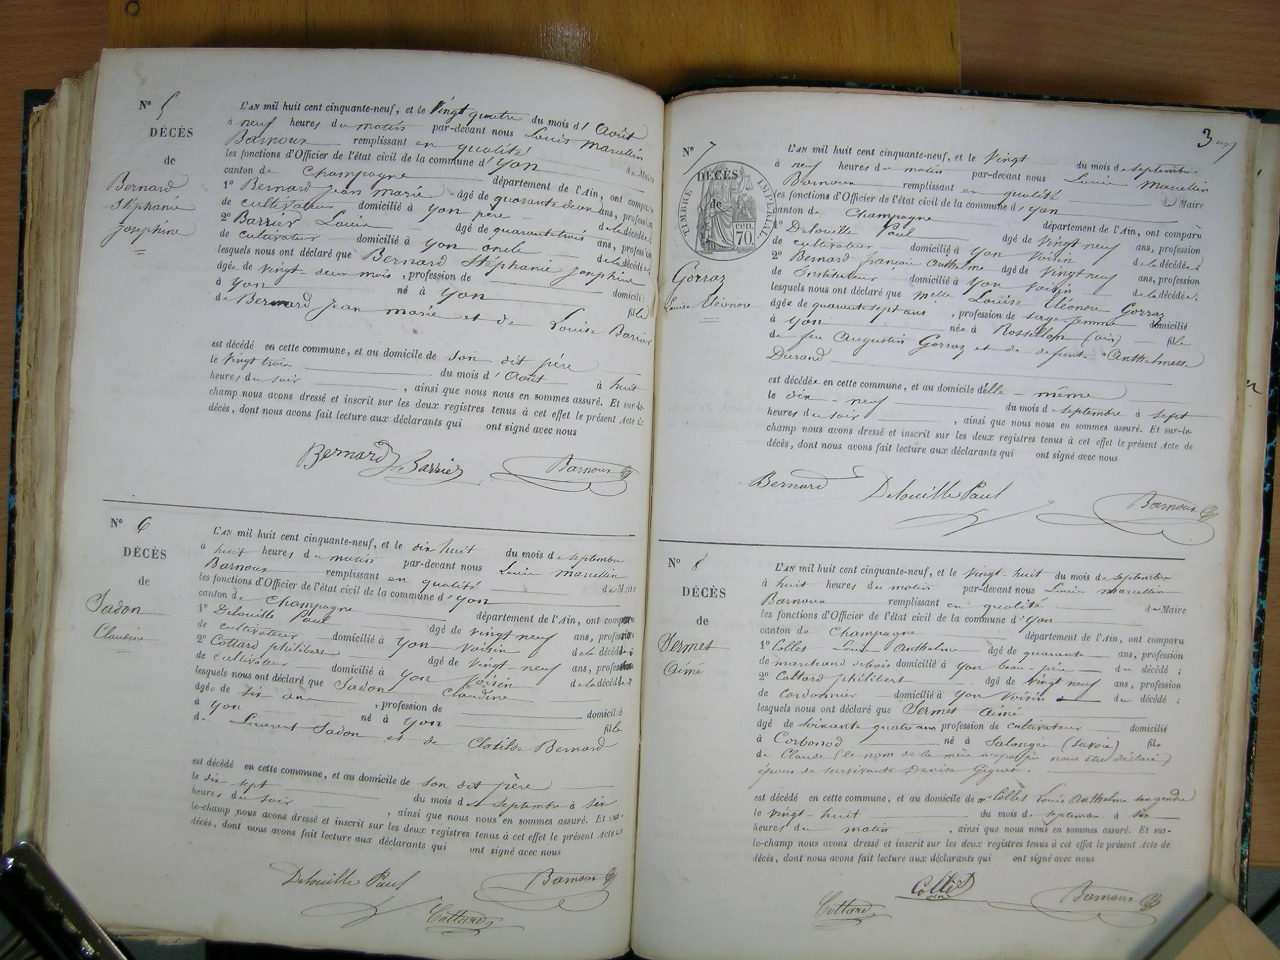 N° 5
DÉCÈS
de
Bernard
Stéphanie
Josephine
L'AN mil huit cent cinquante-neuf, et le Vingt quatre du mois d'Août
à neuf heures du matin par-devant nous Louis Marcellin
Barnoux remplissant en qualité de Maire
les fonctions d'Officier de l'état civil de la commune d'Yon
canton de Champagne département de l'Ain, ont comparu
1° Bernard Jean Marie âgé de quarante deux ans, profession
de cultivateur domicilié à Yon père de la décédée
2° Barrier Louis âgé de quarante trois ans, profession
de cultivateur domicilié à Yon oncle de la décédée
lesquels nous ont déclaré que Bernard Stéphanie Josephine
âgée de vingt deux mois, profession de
à Yon né à Yon domicilié
de Bernard Jean Marie et de Louise Barrier fille
est décédé en cette commune, et au domicile de son dit père
le vingt trois du mois d'Août à huit
heures du soir, ainsi que nous nous en sommes assuré. Et sur-le-
champ nous avons dressé et inscrit sur les deux registres tenus à cet effet le présent Acte de
décès, dont nous avons fait lecture aux déclarants qui ont signé avec nous
Bernard Barrier Barnoux
N° 6
DÉCÈS
de
Sadon
Claudine
L'AN mil huit cent cinquante-neuf, et le dix huit du mois de septembre
à huit heures du matin par-devant nous Louis Marcellin
Barnoux remplissant en qualité de Maire
les fonctions d'Officier de l'état civil de la commune d'Yon
canton de Champagne département de l'Ain, ont comparu
1° Delouille Paul âgé de vingt neuf ans, profession
de cultivateur domicilié à Yon voisin de la décédée
2° Cottard philibert âgé de vingt neuf ans, profession
de cultivateur domicilié à Yon voisin de la décédée
lesquels nous ont déclaré que Sadon Claudine
âgée de six ans, profession de domicilié
à Yon né à Yon fille
de Laurent Sadon et de Clotilde Bernard
est décédé en cette commune, et au domicile de son dit père
le dix sept du mois de septembre à six
heures du soir, ainsi que nous nous en sommes assuré. Et sur-
le-champ nous avons dressé et inscrit sur les deux registres tenus à cet effet le présent Acte de
décès, dont nous avons fait lecture aux déclarants qui ont signé avec nous
Delouille Paul Barnoux
Cottard
3
N° 7
DÉCÈS
de
TIMBRE IMPÉRIAL
70
Gorraz
Louise Eléonore
L'AN mil huit cent cinquante-neuf, et le Vingt du mois de septembre
à neuf heures du matin par-devant nous Louis Marcellin
Barnoux remplissant en qualité de Maire
les fonctions d'Officier de l'état civil de la commune d'Yon
canton de Champagne département de l'Ain, ont comparu
1° Delouille Paul âgé de vingt neuf ans, profession
de cultivateur domicilié à Yon voisin de la décédée
2° Bernard françois Anthelme âgé de vingt neuf ans, profession
de Instituteur domicilié à Yon voisin de la décédée
lesquels nous ont déclaré que Melle Louise Eléonore Gorraz
âgée de quarante sept ans, profession de sage femme domicilié
à Yon née à Rossillon (ain) fille
de feu Augustin Gorraz et de defunte Anthelmette
Durand
est décédée en cette commune, et au domicile d'elle-même
le dix-neuf du mois de septembre à sept
heures du soir, ainsi que nous nous en sommes assuré. Et sur-le-
champ nous avons dressé et inscrit sur les deux registres tenus à cet effet le présent Acte de
décès, dont nous avons fait lecture aux déclarants qui ont signé avec nous
Bernard Delouille Paul Barnoux
N° 8
DÉCÈS
de
Sermet
Aimé
L'AN mil huit cent cinquante-neuf, et le vingt-huit du mois de septembre
à huit heures du matin par-devant nous Louis Marcellin
Barnoux remplissant en qualité de Maire
les fonctions d'Officier de l'état civil de la commune d'Yon
canton de Champagne département de l'Ain, ont comparu
1° Collet Louis Anthelme âgé de quarante ans, profession
de marchand de bois domicilié à Yon beau-père du décédé;
2° Cottard philibert âgé de vingt neuf ans, profession
de cordonnier domicilié à Yon voisin du décédé;
lesquels nous ont déclaré que Sermet Aimé
âgé de soixante quatre ans profession de cultivateur domicilié
à Corbonod né à (Savoie) fils
de Claude (le nom de la mère n'a pu nous être déclaré)
époux de survivante Giguet
est décédé en cette commune, et au domicile de Mr Collet Louis Anthelme son gendre
le vingt-huit du mois de septembre à six
heures du matin, ainsi que nous nous en sommes assuré. Et sur-
le-champ nous avons dressé et inscrit sur les deux registres tenus à cet effet le présent Acte de
décès, dont nous avons fait lecture aux déclarants qui ont signé avec nous
Cottard Collet Barnoux